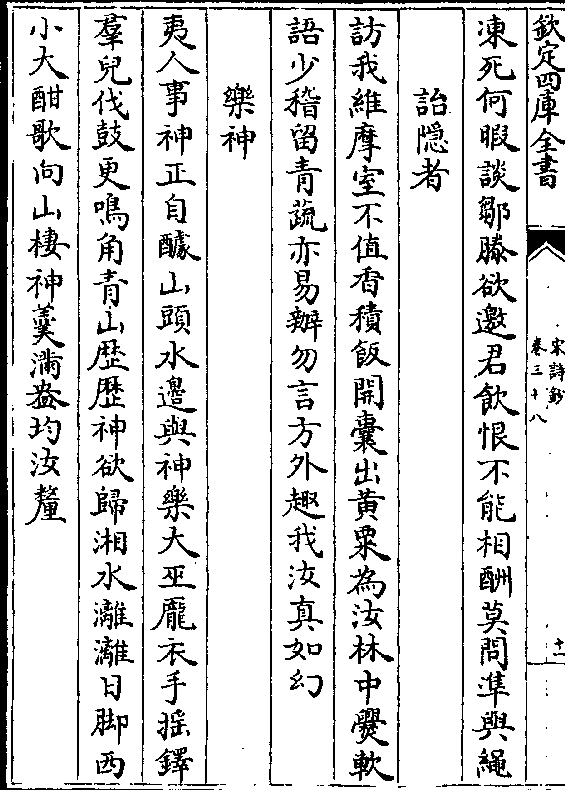 欽定四庫全書
宋詩鈔
卷三十八
十一
凍死何暇談鄒滕欲邀君飲恨不能相酬莫問準與繩
詒隠者
訪我維摩室不值香積飯開囊出黃粟為汝林中爨軟
語少稽留青蔬亦易辦勿言方外趣我汝真如幻
樂神
夷人事神正自醵山頭水邉與神樂大巫厖衣手揺鐸
羣兒伐鼓更鳴角青山歴歴神欲歸湘水灕灕日脚西
小大酣歌向山棲神羮滿盎均汝釐